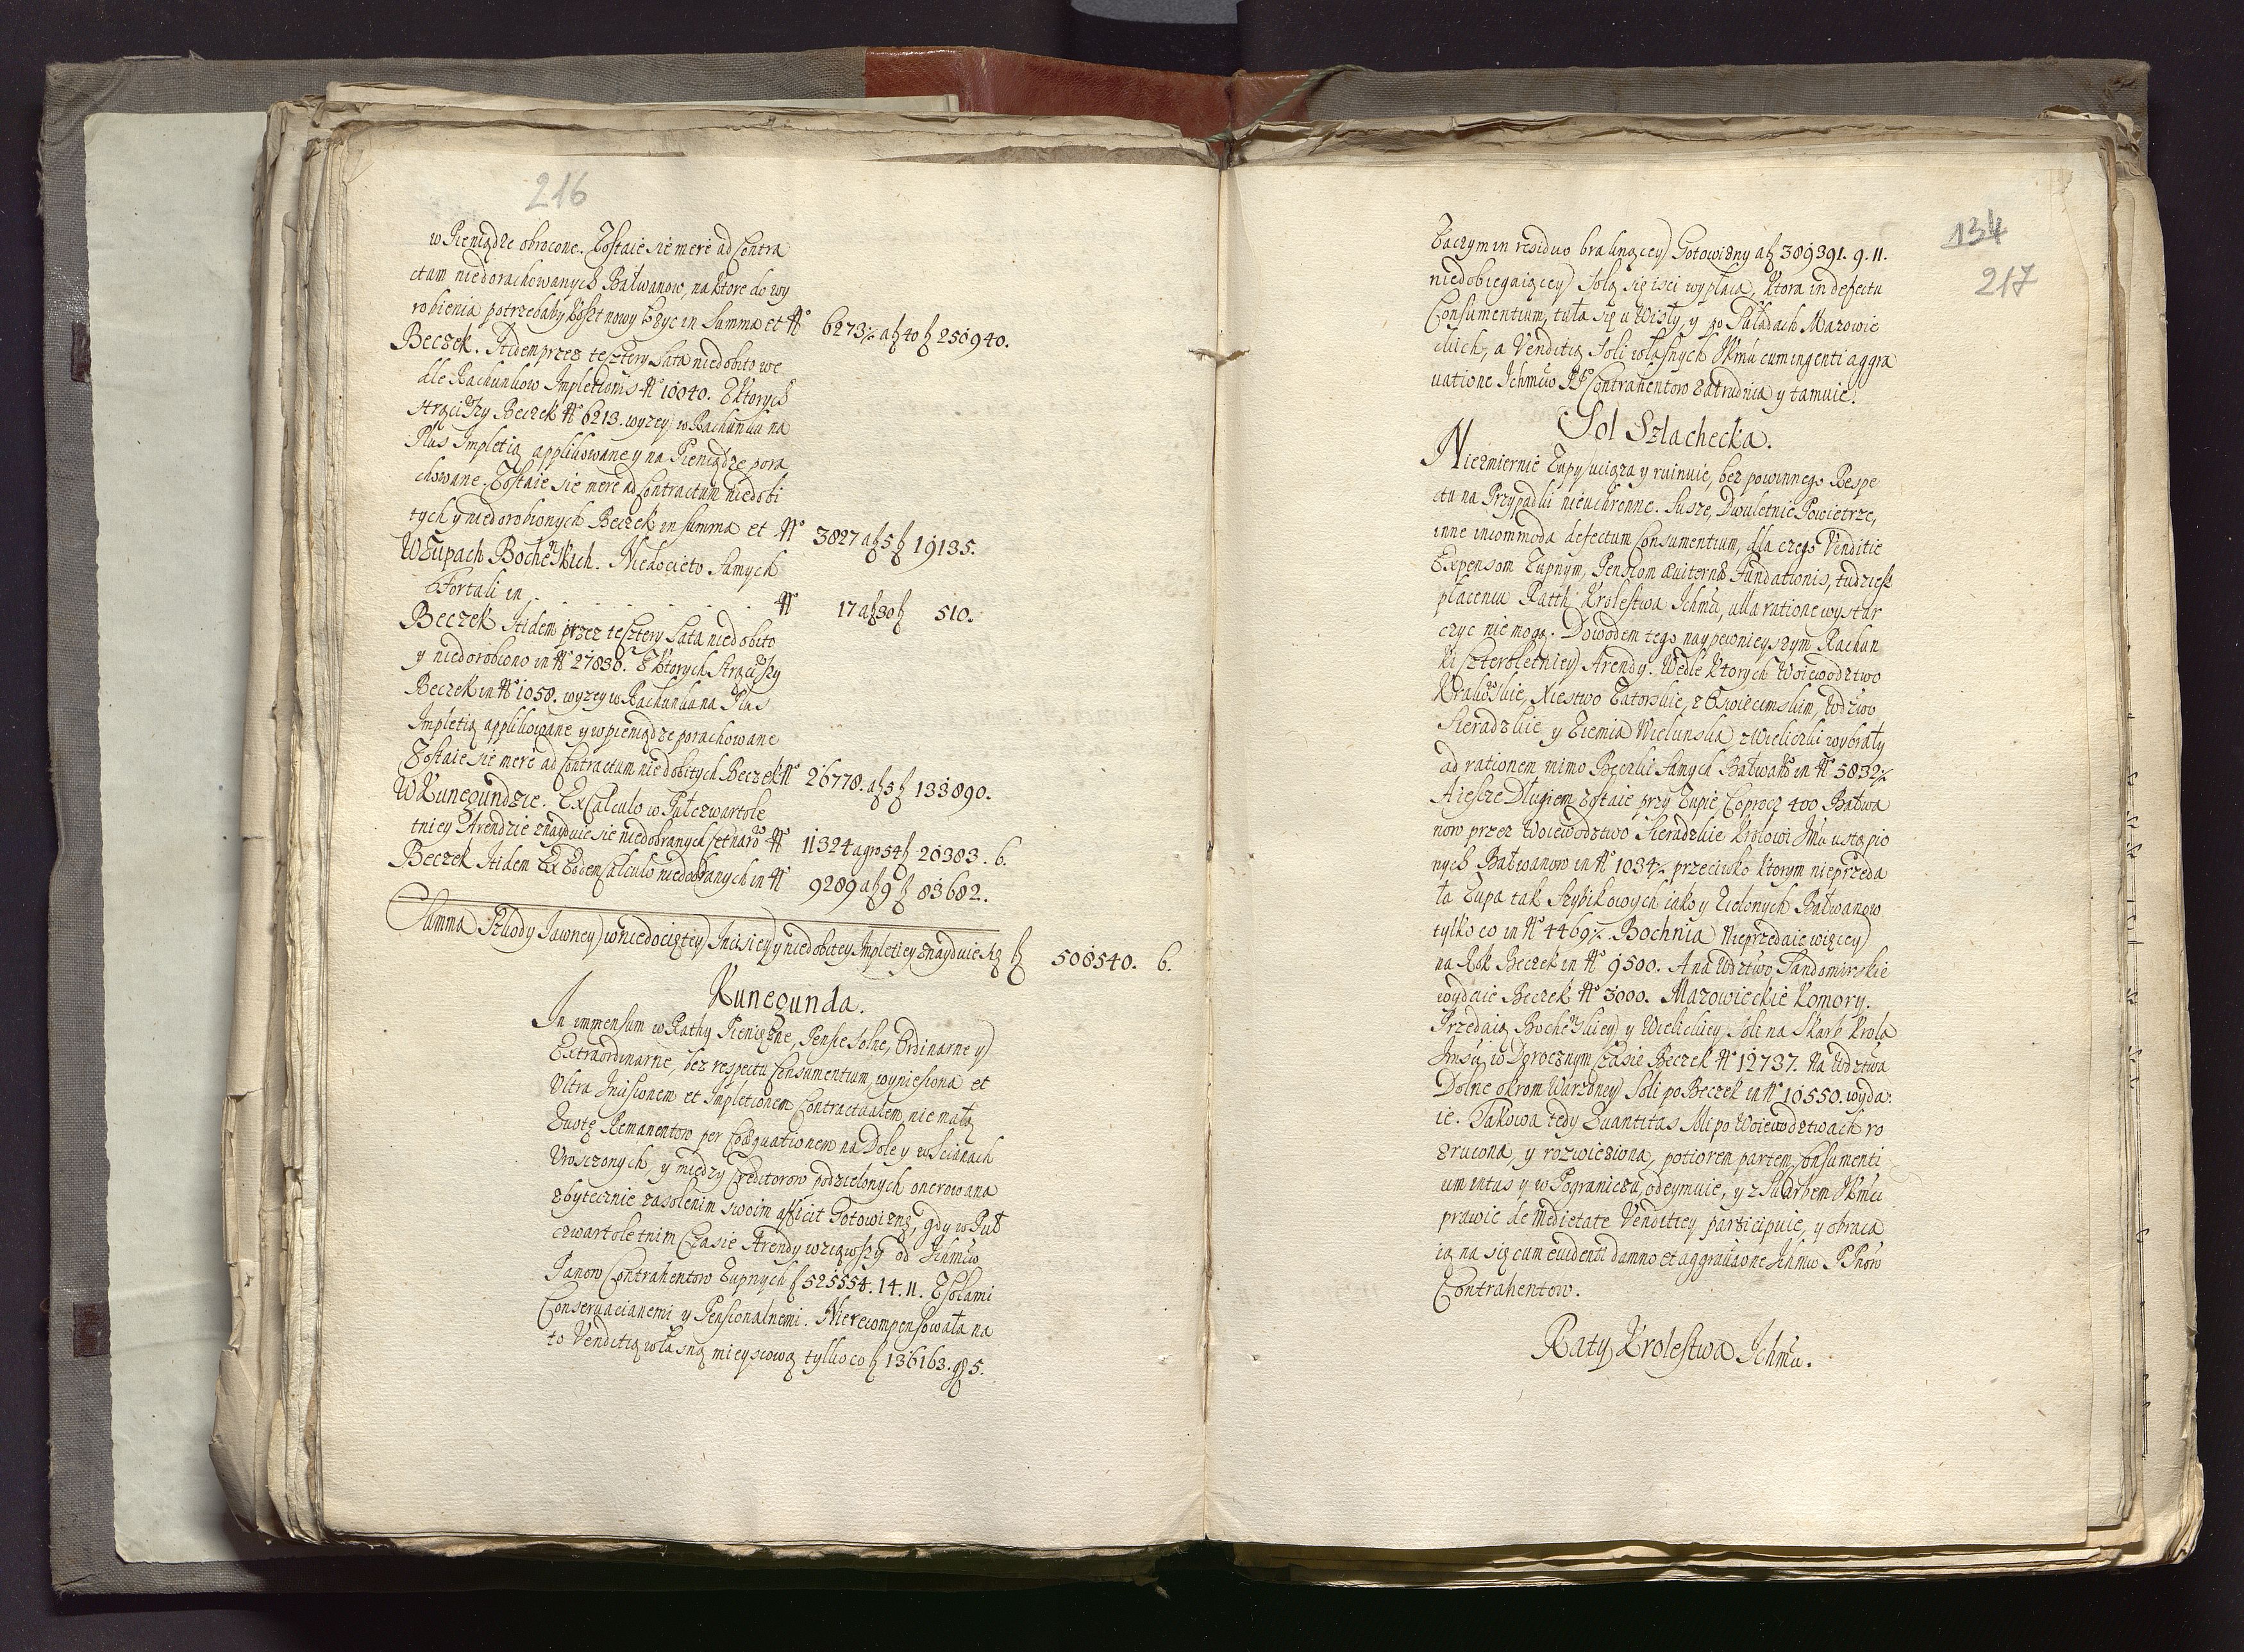 216
w Pieniądze obrocone. Zostaie się merè ad Contra
ctum niedorachowanych Bałwanow, na ktore do wy
robienia potrzebaby Koszt nowy łożyc in Summa et No 6273½ a f 40 f 250940.
Beczek. Itidem przez te sztery Lata niedobito we
dle Rachunkow Impletionis No 10040. Z ktorych
strąciwszy Beczek No 6213. wyzey w Rachunku na
Plus Impletią applikowane y na Pieniądze pora
chowane. Zostaie się merè ad Contractum niedobi
tych y niedorobionych Beczek in summa et No 3827 a f 5 f 19135.
W Zupach Bochenskich. Niedocięto Samych
Fortali in . . . . . . . No 17 a f 30 f 510.
Beczek Itidem przez te sztery Lata niedobito
y niedorobiono in No 27836. Z ktorych strąciwszy
Beczek in No 1058. wyzey w Rachunku na Plus
Impletią applikowane y w pieniądze porachowane
Zostaie się merè ad Contractum niedobitych Beczek No 26778. a f 5 f 133890.
W Kunegundzie. Ex Calculo w Puł czwartole
tniey Arendzie znayduie się niedobranych Cetnarow No 11324 a gro 54 f 20383. 6.
Beczek Itidem Ex Eodem Calculo niedobranych in No 9289 a f 9 f 83682.
Summa Szkody Jawney w niedociętey Incisiey y niedobitey Impletiey znayduie się f 508540. 6.
Kunegunda.
In immensum w Rathy Pieniężne, Pensie solne, Ordinarne y
Extraordinarne, bez respectu Consumentium, wyniesiona et
Ultra Incisionem et Impletionem Contractualem, nie małą
Kwotę Remanentow per Coæquationem na Dole y w Scianach
Uroszczonych, y między Creditorow podzielonych onerowana
zbytecznie zasolenim swoim afficit Gotowiznę, gdy w Puł
czwartoletnim Czasie Arendy wziąwszy od Ichmciow
Panow Contrahentow Zupnych f 525554. 14. 11. Z Solami
Conseruacianemi y Pensionalnemi. Nierecompensowała na
to Venditią własną mieyscową tylko co f 136163. g 5.
134
217
Zaczym in residuo brakuiącey Gotowizny a f 389391. 9. 11.
niedobiegaiącey Solą się isci wypłaca, ktora in defectu
Consumentium, tuła się u Wisły, y po Składach Mazowie
ckich, a Venditią Soli własnych Jkmci cum ingenti aggra
uatione Ichmciow PP Contrahentow zatrudnia y tamuie.
Sol Szlachecka.
Niezmiernie Zupy uciąza y ruinuie, bez powinnego Respe
ctu na Przypadki nieuchronne. Susze, Dwuletnie Powietrze,
inne incommoda defectum Consumentium, dla czego Venditie
Expensom Zupnym, Pensiom Æuiternæ Fundationis, tudziesz
płaceniu Ratth Krolestwa Ichmci, ulla ratione wystar
czyc nie mogą. Dowodem tego naypewnieyszym Rachun
ki szteroletniey Arendy. Wedle ktorych Woiewodztwo
Krakowskie, Xiestwo Zatorskie, z Oswięcimskim, Wdztwo
Sieradzkie y Ziemia Wielunska z Wieliczki wybrały
ad rationem mimo Beczki Samych Bałwanow in No 5832½
A iescze Długiem zostaie przy Zupie Coprocz 400 Bałwa
now przez Woiewodztwo Sieradzkie Krolowi Jmci ustąpio
nych Bałwanow in No 1034½ przeciwko ktorym nieprzeda
ła Zupa tak Szybikowych iako y Zielonych Bałwanow
tylko co in No 4469½. Bochnia Nieprzedaie więcey
na Rok Beczek in No 9500. A na Wdztwo Sandomirskie
wydaie Beczek No 3000. Mazowieckie Komory.
Przedaią Bochenskiey y Wielickiey Soli na Skarb Krola
Jmsci w Dorocznym Czasie Beczek No 12737. Na Wdztwa
Dolne okrom Warzoney Soli po Beczek in No 10550. wyda:
ie. Takowa tedy Quantitas Soli po Woiewodztwach ro
zrucona, y rozwieziona, potiorem partem Consumenti
um intus y w Pograniczu, odeymuie, y z Skarbem Jkmci
prawie de Medietate Venditiey participuie, y obraca
ią na się cum euidenti damno et aggrauaone Ichmciow P Pnow
Contrahentow.
Raty Krolestwa Ichmci.